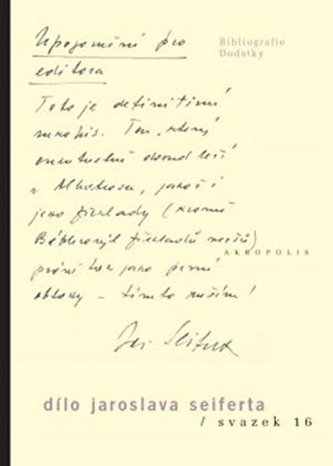 Upozornění pro
editora
Bibliografie
Dodatky
Toto je definitivní
rukopis. Ten, který
eventuelně dosud leží
v Albatrosu, jakož i
jeho překlady (kromě
překladů
AKROPOLIS
právě tak jako první
– tímto ruším!
Jar. Seifert
dílo jaroslava seiferta
/ svazek 16